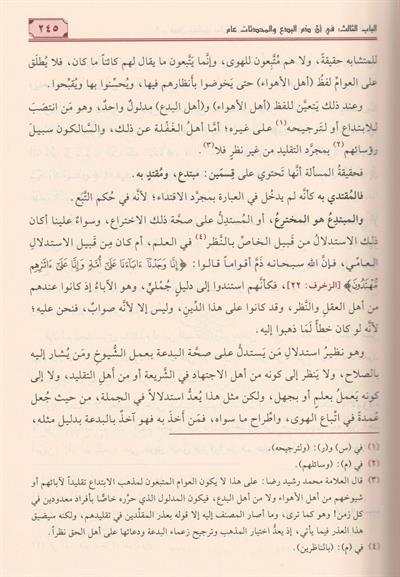 الباب الثالث: في أن ذم البدع والمحدثات عام
٢٤٥
للمتشابه حقيقةً، ولا هم مُتَّبعون للهوى، وإنَّما يَتَّبعون ما يقال لهم كائناً ما كان، فلا يُطلَق
على العوامِّ لفظُ (أهل الأهواء) حتى يَخوضوا بأنظارهم فيها، ويُحسِّنوا بها ويُقبِّحوا.
وعند ذلك يَتعيَّن للفظ (أهل الأهواء) و(أهل البدع) مدلولٌ واحدٌ؛ وهو مَن انتصَبَ
للابتداع أو لتَرجيحه(١) على غيره؛ أمَّا أهلُ الغَفْلة عن ذلك، والسَّالكون سبيلَ
رؤسائهم(٢) بمجرَّد التقليد من غير نظرٍ فلا(٣).
فحقيقةُ المسألة أنَّها تَحتوي على قِسمَين: مبتدعٍ، ومُقتدٍ به.
فالمُقتدي به كأنَّه لم يَدخُل في العبارة بمجرَّد الاقتداء؛ لأنَّه في حُكم التَّبَع.
والمبتدِعُ هو المخترعُ، أو المُستدِلُّ على صحَّة ذلك الاختراع، وسواءٌ علينا أكان
ذلك الاستدلالُ من قَبيل الخاصِّ بالنَّظر(٤) في العلم، أم كان مِن قَبيل الاستدلالِ
العاميِّ، فإنَّ الله سبحانه ذَمَّ أقواماً قالوا: ﴿إِنَّا وَجَدْنَآ ءَابَآءَنَا عَلَىٰٓ أُمَّةٍ وَإِنَّا عَلَىٰٓ ءَاثَٰرِهِم
مُّهْتَدُونَ﴾ [الزخرف: ٢٢]، فكأنَّهم استندوا إلى دليلٍ جُمْليٍّ، وهو الآباءُ إذ كانوا عندهم
من أهل العقلِ والنَّظر، وقد كانوا على هذا الدِّينِ، وليس إلا لأنَّه صوابٌ، فنحن عليه؛
لأنَّه لو كان خطأً لَمَا ذهبوا إليه.
وهو نظيرُ استدلالِ مَن يَستدلُّ على صحَّة البدعة بعمل الشُّيوخِ ومَن يُشار إليه
بالصَّلاح، ولا يَنظر إلى كونه من أهل الاجتهاد في الشَّريعة أو من أهل التقليد، ولا إلى
كونه يَعملُ بعلمٍ أو بجهلٍ، ولكن مثل هذا يُعدُّ استدلالاً في الجملة، من حيث جُعل
عُمدةً في اتِّباع الهوى، واطِّراح ما سواه، فمَن أَخذ به فهو آخذٌ بالبدعة بدليل مثله،
(١) في (س) و(ر): (ولترجيحه).
(٢) في (م): (وسائلهم).
(٣) قال العلامة محمد رشيد رضا: على هذا لا يكون العوام المتبعون لمذهب الابتداع تقليداً لآبائهم أو
شيوخهم من أهل الأهواء ولا من أهل البدع، فيكون المدلول الذي حرّره خاصًّا بأفراد معدودين في
كل زمن! وهو كما ترى، وما أصار المصنف إليه إلا قوله بعذر المقلّدين في تقليدهم، ولكنه سيضيق
هذا العذر فيما يأتي، إذ يعدُّ اختيار المذهب وترجيح زعماء البدعة ودعاتها على أهل الحق نظراً.
(٤) في (م): (بالناظرين).